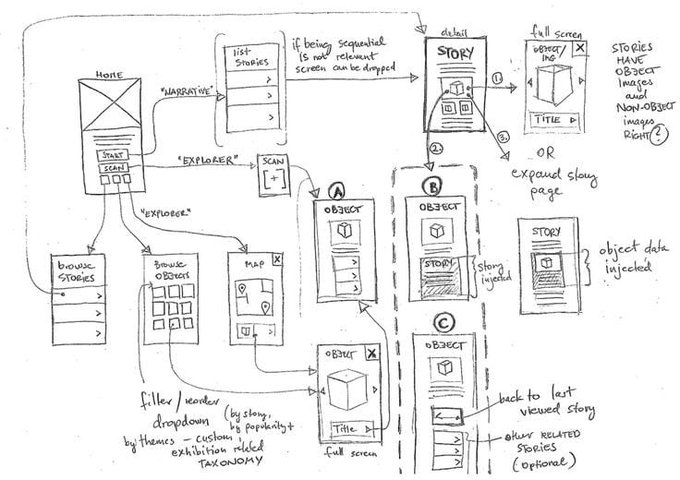 HOME
START
SCAN
"NARRATIVE"
list
STORIES
if being sequential
is not relevant
screen can be dropped
"EXPLORER"
SCAN
[+]
"EXPLORER"
detail
STORY
1.
2.
3.
full screen
OBJECT/
IMG
X
TITLE
STORIES
HAVE
OBJECT
images
and
NON-OBJECT
images
RIGHT ?
OR
expand story
page
A
OBJECT
B
OBJECT
STORY
story
injected
STORY
object data
injected
browse
STORIES
browse
OBJECTS
MAP
X
filter/reorder
dropdown
(by story,
by popularity +
by themes - custom,
exhibition related
TAXONOMY
OBJECT
X
Title
full screen
C
OBJECT
back to last
viewed story
OTHER RELATED
STORIES
(optional)